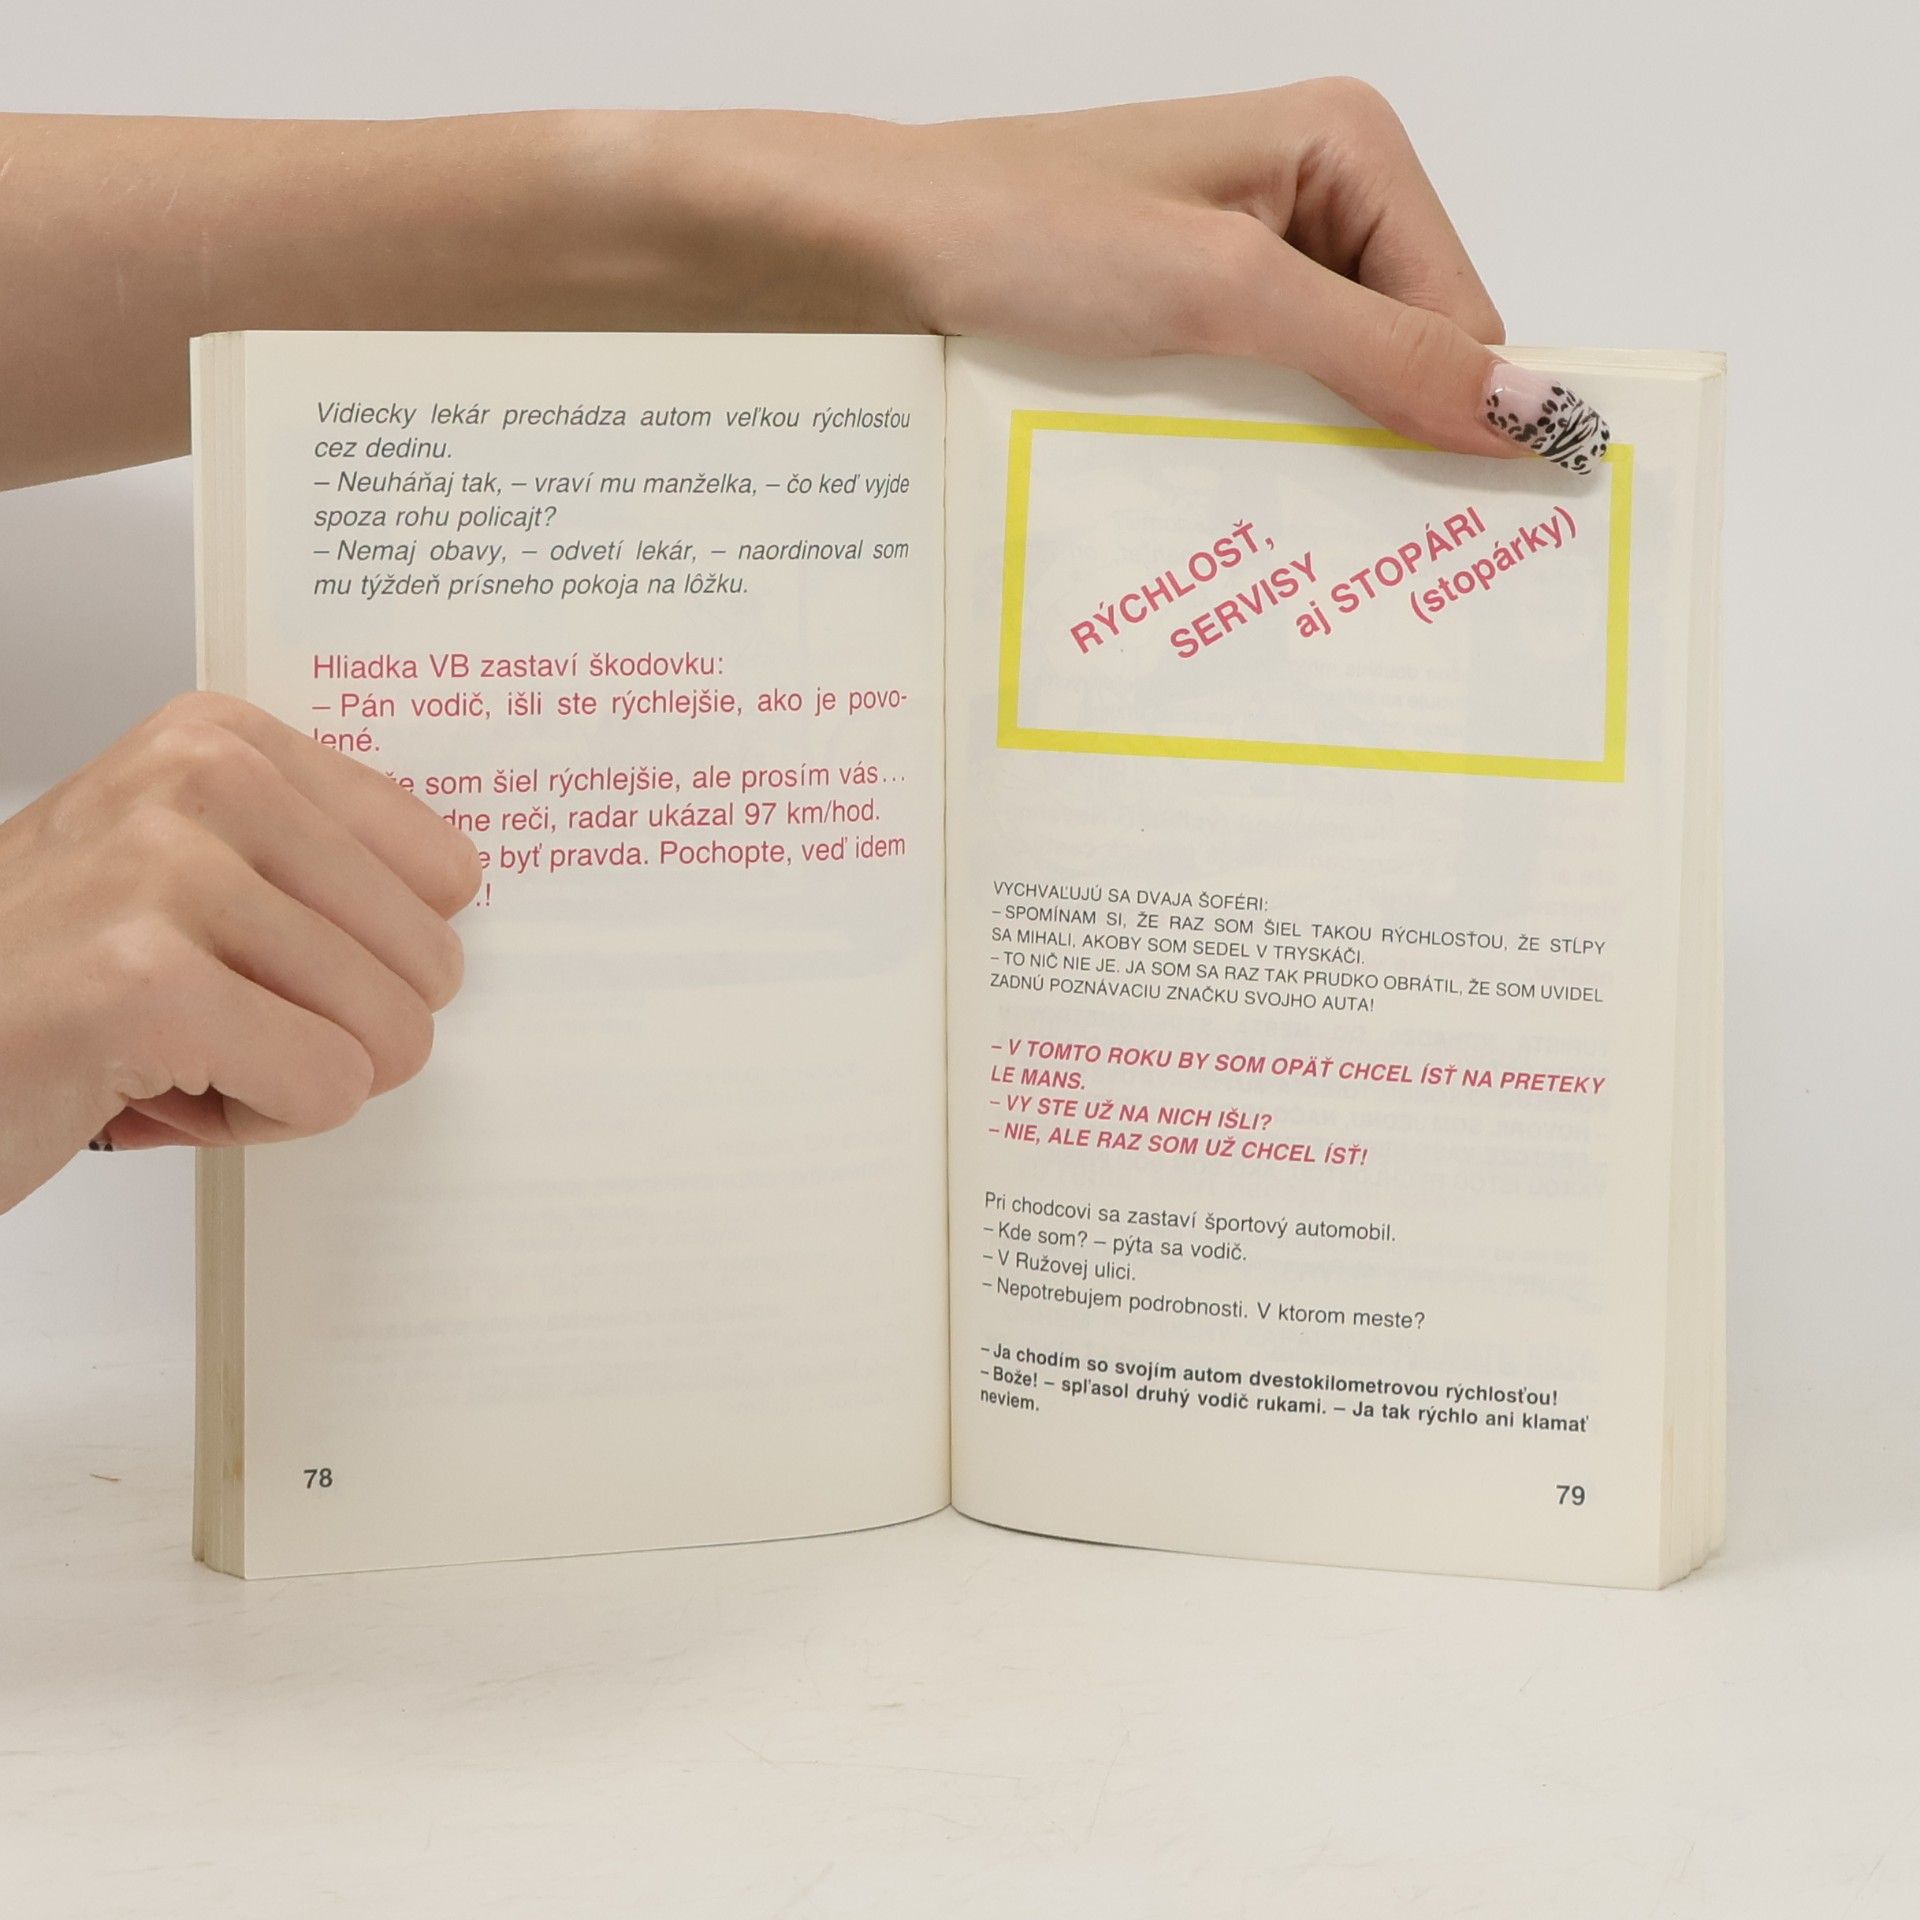 Vidiecky lekár prechádza autom veľkou rýchlosťou
cez dedinu.
– Neuháňaj tak, – vraví mu manželka, – čo keď vyjde
spoza rohu policajt?
– Nemaj obavy, – odvetí lekár, – naordinoval som
mu týždeň prísneho pokoja na lôžku.
Hliadka VB zastaví škodovku:
– Pán vodič, išli ste rýchlejšie, ako je povo-
lené.
som šiel rýchlejšie, ale prosím vás...
reči, radar ukázal 97 km/hod.
byť pravda. Pochopte, veď idem
.!
78
RÝCHLOSŤ,
SERVISY
aj STOPÁRI
(stopárky)
VYCHVAĽUJÚ SA DVAJA ŠOFÉRI:
– SPOMÍNAM SI, ŽE RAZ SOM ŠIEL TAKOU RÝCHLOSŤOU, ŽE STĹPY
SA MIHALI, AKOBY SOM SEDEL V TRYSKÁČI.
– TO NIČ NIE JE. JA SOM SA RAZ TAK PRUDKO OBRÁTIL, ŽE SOM UVIDEL
ZADNÚ POZNÁVACIU ZNAČKU SVOJHO AUTA!
– V TOMTO ROKU BY SOM OPÄŤ CHCEL ÍSŤ NA PRETEKY
LE MANS.
– VY STE UŽ NA NICH IŠLI?
– NIE, ALE RAZ SOM UŽ CHCEL ÍSŤ!
Pri chodcovi sa zastaví športový automobil.
– Kde som? – pýta sa vodič.
– V Ružovej ulici.
– Nepotrebujem podrobnosti. V ktorom meste?
– Ja chodím so svojím autom dvestokilometrovou rýchlosťou!
– Bože! – spľasol druhý vodič rukami. – Ja tak rýchlo ani klamať
neviem.
79